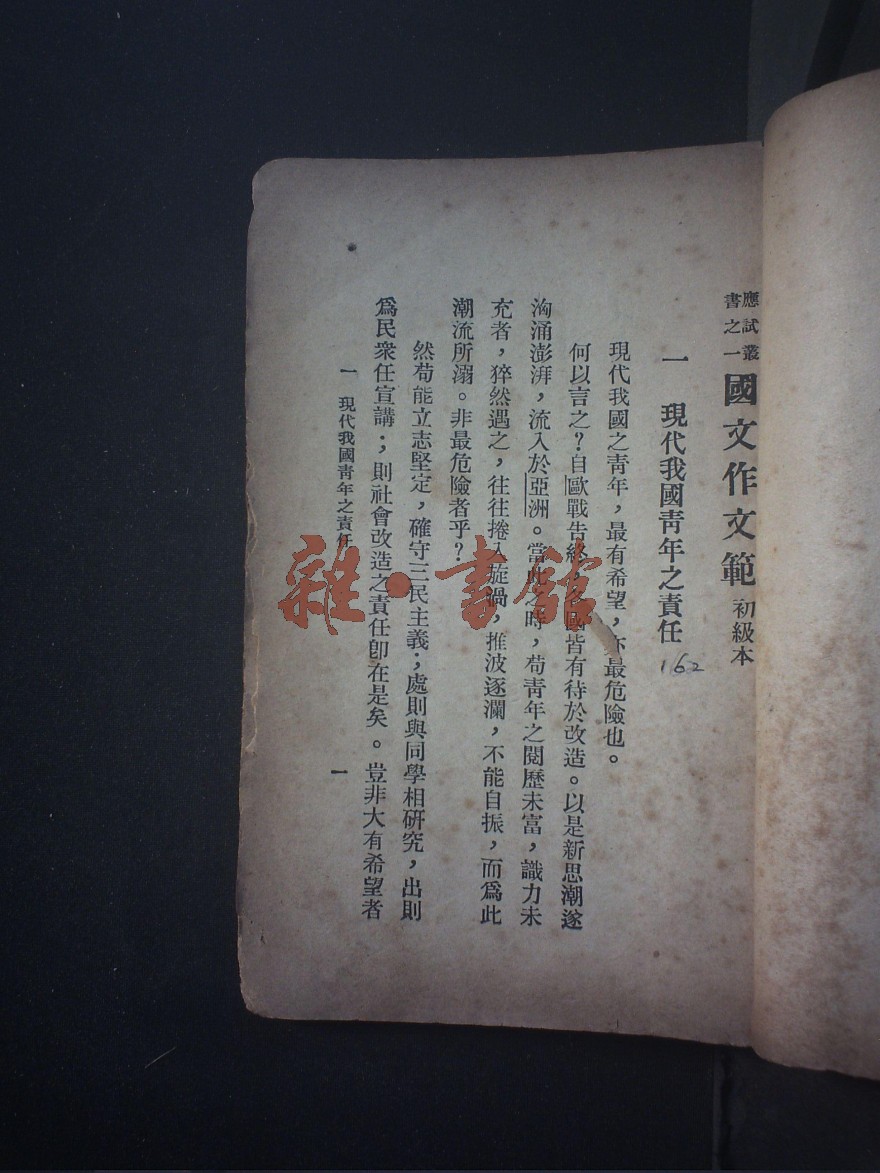 應試叢書之一
國文作文範 初級本
一 現代我國靑年之責任
162
現代我國之靑年，最有希望，亦最危險也。
何以言之？自歐戰告終，各國皆有待於改造。以是新思潮遂
洶涌澎湃，流入於亞洲。當此之時，苟靑年之閱歷未富，識力未
充者，猝然遇之，往往捲入旋渦，推波逐瀾，不能自振，而爲此
潮流所溺。非最危險者乎？
然苟能立志堅定，確守三民主義；處則與同學相硏究，出則
爲民衆任宣講；則社會改造之責任卽在是矣。豈非大有希望者
一 現代我國靑年之責任
一
雜·書館